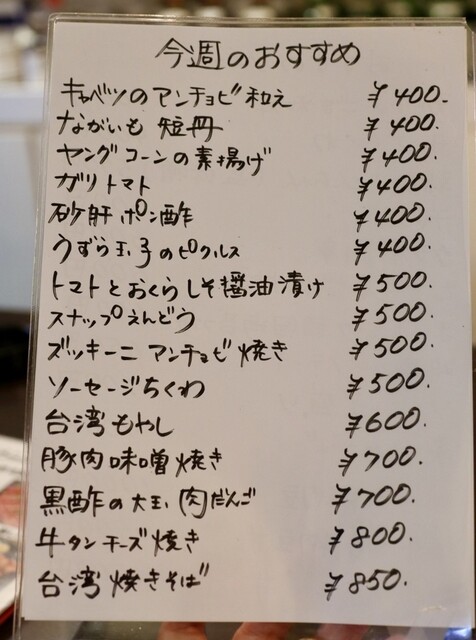 今週のおすすめ
キャベツのアンチョビ和え ¥400.
ながいも 短冊 ¥400.
ヤングコーンの素揚げ ¥400.
ガリトマト ¥400.
砂肝ポン酢 ¥400.
うずら玉子のピクルス ¥400.
トマトとおくらしそ醤油漬け ¥500.
スナップえんどう ¥500.
ズッキーニ アンチョビ焼き ¥500.
ソーセージちくわ ¥500.
台湾もやし ¥600.
豚肉味噌焼き ¥700.
黒酢の大玉肉だんご ¥700.
牛タンチーズ焼き ¥800.
台湾焼きそば ¥850.